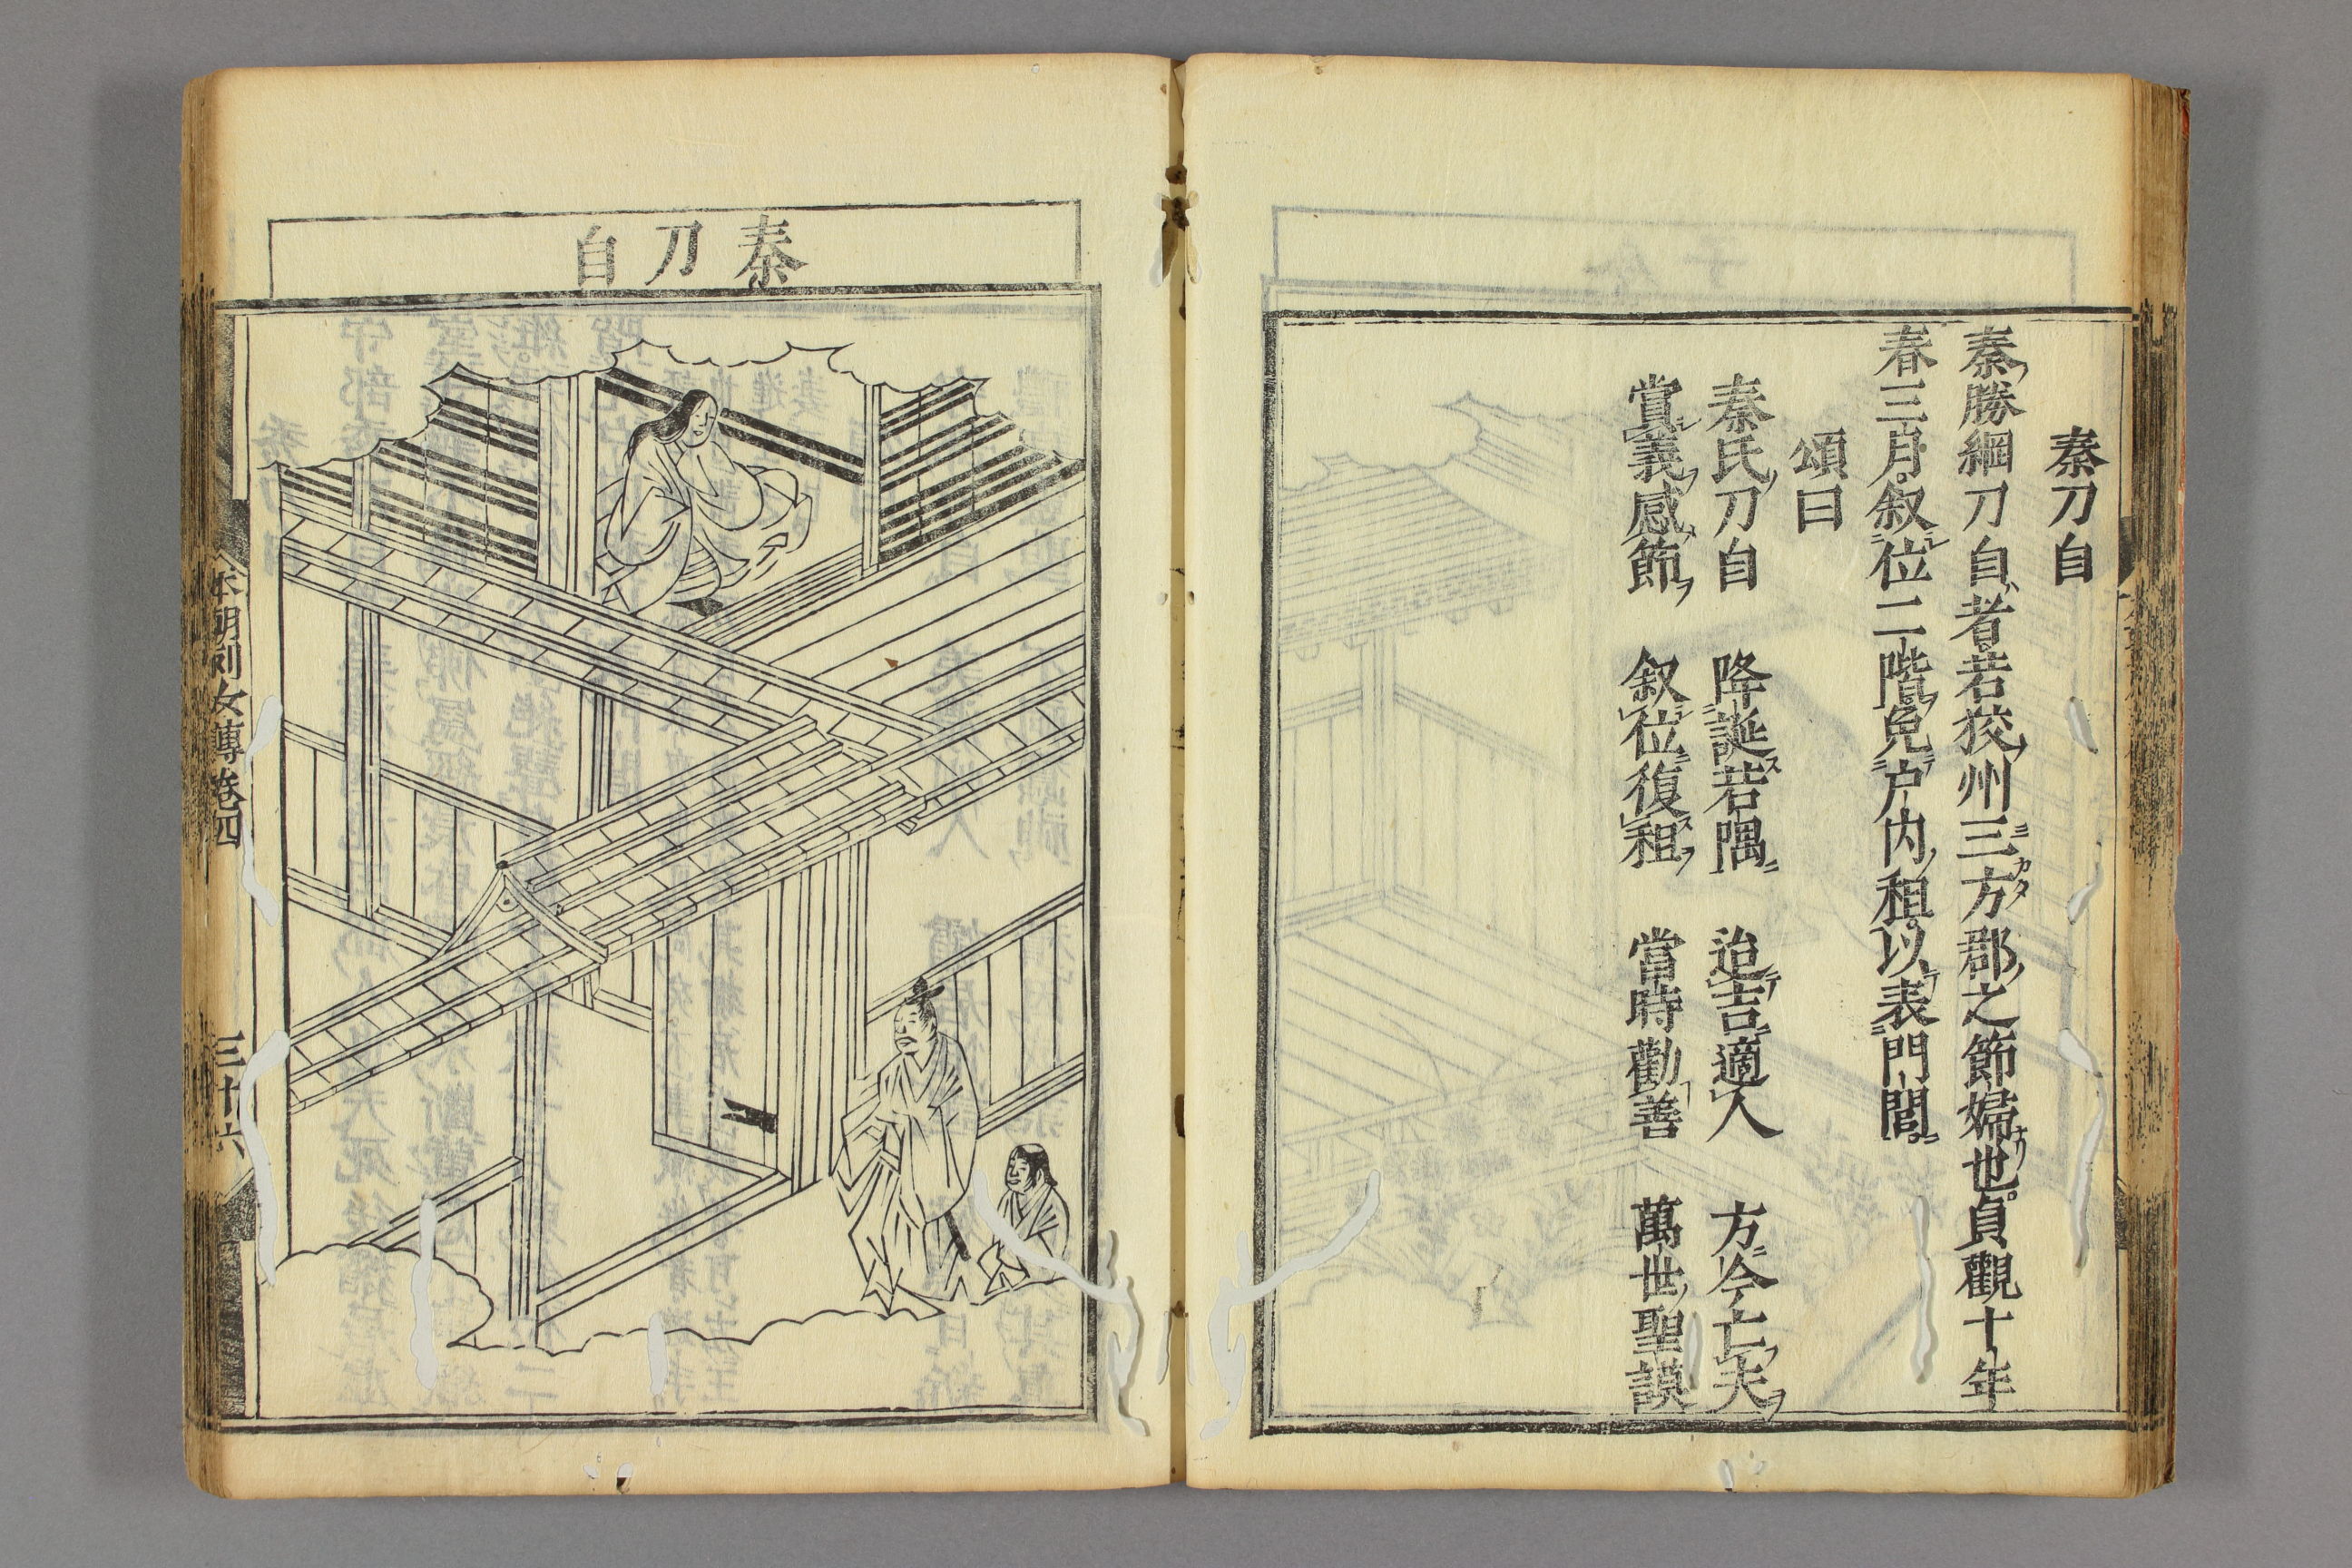 秦刀自
秦勝綱刀自者若狹州三方郡之節婦也貞觀十年
ミカタ
春三月叙位二階免戸内租以表門閭
頌曰
秦氏刀自 降誕若隅 迨吉適人 方今亡夫
賞義感節 叙位復租 當時勸善 萬世聖謨
秦刀自
本朝列女傳卷四 三十六